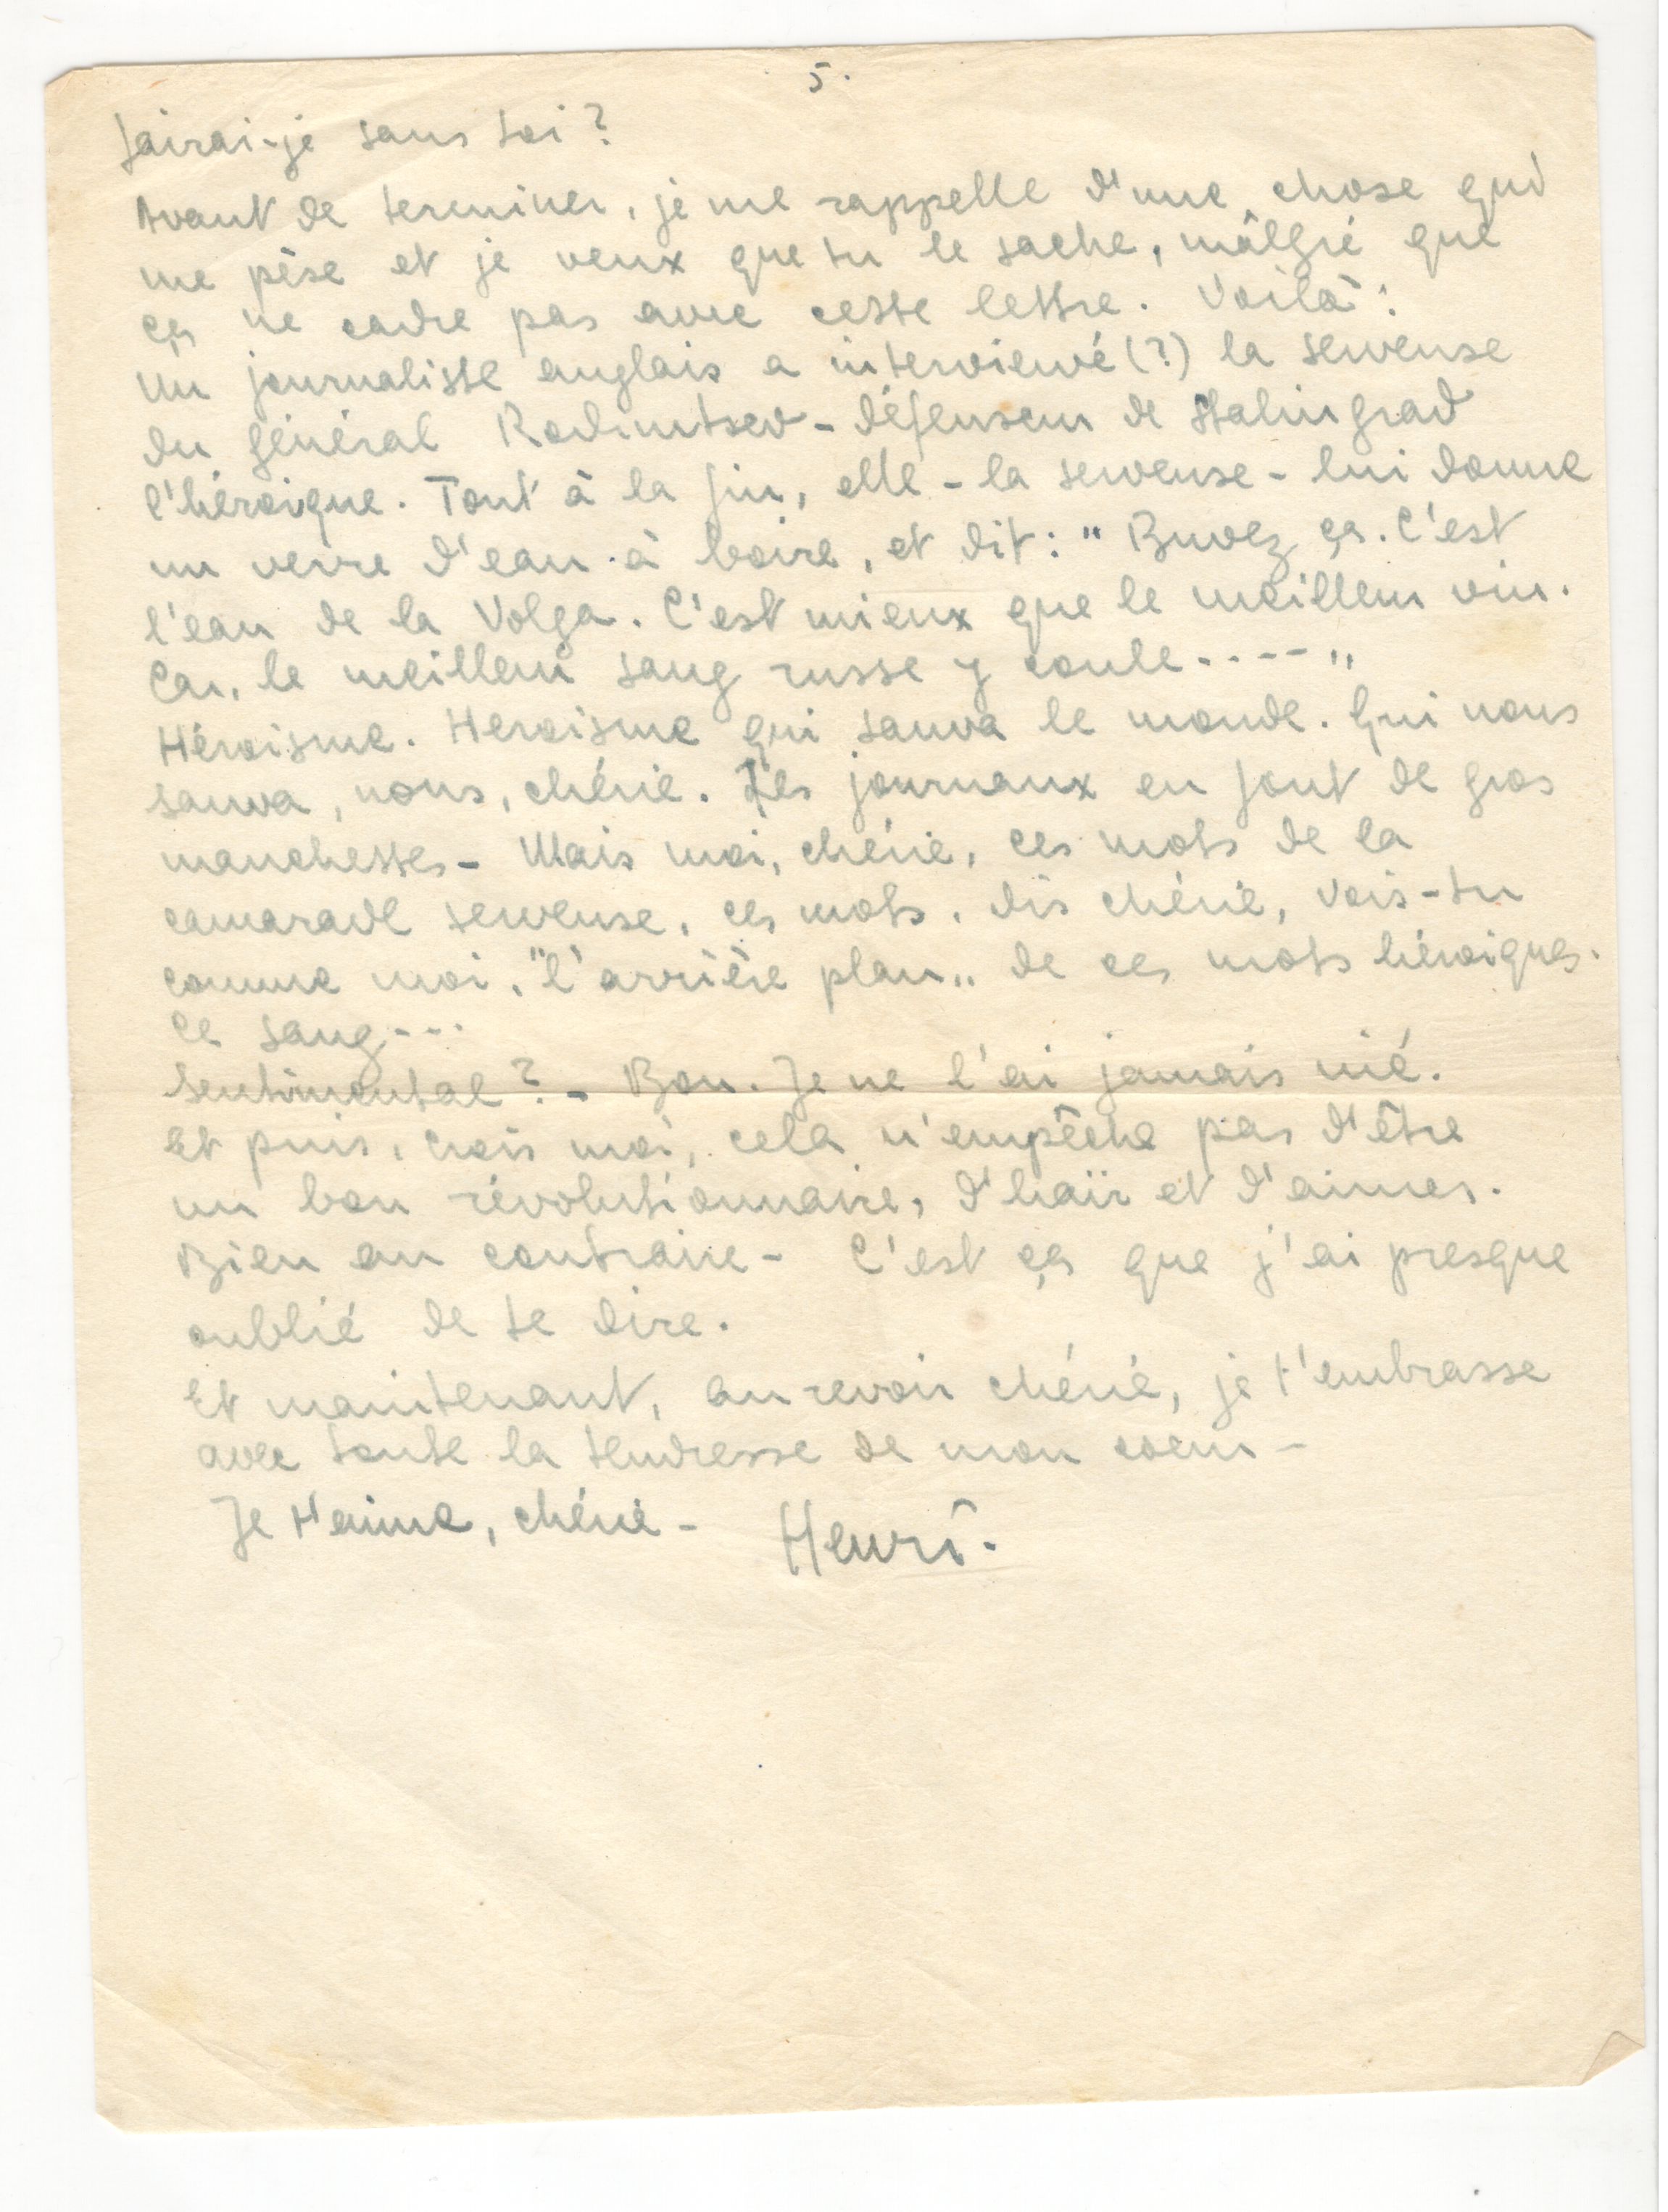 5.
fairai-je sans toi?
Avant de terminer, je me rappelle d'une chose qui
me pèse et je veux que tu le sache, mâlgré que
ça ne cadre pas avec cette lettre. Voilà:
Un journaliste anglais a interviewé(?) la serveuse
du général Rodimtsev - défenseur de Stalingrad
l'héroique. Tout à la fin, elle - la serveuse - lui donne
un verre d'eau à boire, et dit: "Buvez ça. C'est
l'eau de la Volga. C'est mieux que le meilleur vin.
Car, le meilleur sang russe y coule....."
Héroisme. Heroisme qui sauva le monde. Qui nous
sauva, nous, chérie. Les journaux en font de gros
manchettes - Mais moi, chérie, ces mots de la
camarade serveuse, ces mots, dis chérie, vois-tu
comme moi, "l'arrière plan" de ces mots héroiques.
Ce sang...
Sentimental? - Bon. Je ne l'ai jamais nié.
Et puis, crois moi, cela n'empêche pas d'être
un bon révolutionnaire, d'haïr et d'aimer.
Bien au contraire - C'est ça que j'ai presque
oublié de te dire.
Et maintenant, au revoir chérie, je t'embrasse
avec toute la tendresse de mon coeur -
Je t'aime, chérie - Henri.